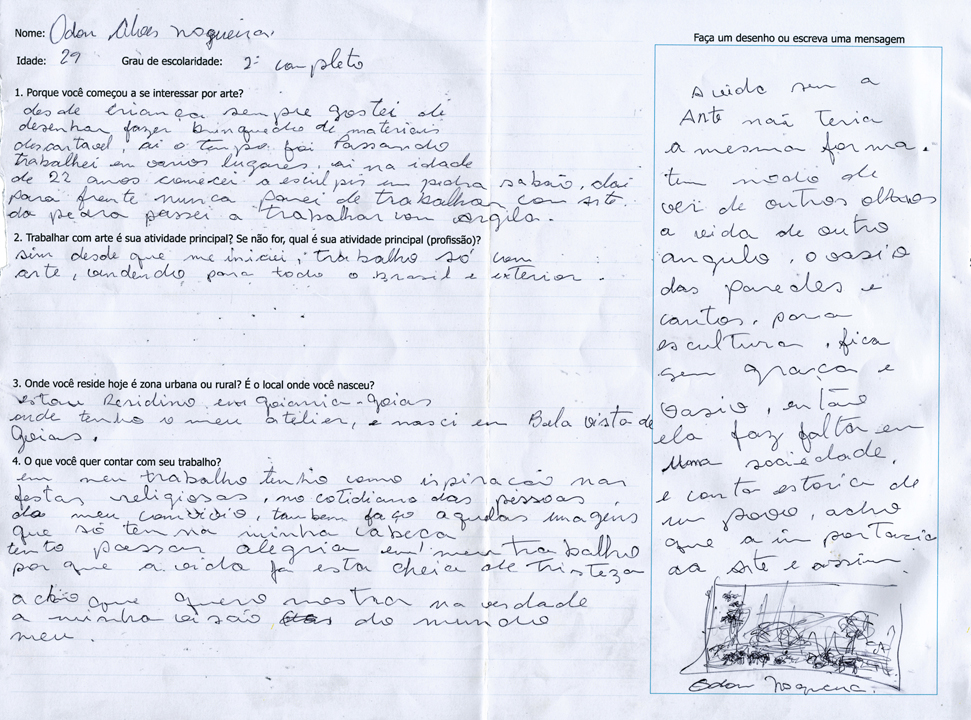 Nome: Odon Alves Nogueira.
Idade: 29 Grau de escolaridade: 2º completo
1. Porque você começou a se interessar por arte?
desde criança sempre gostei de
desenhar fazer brinquedio de materiais
descartavel, ai o tempo foi Passando
trabalhei en varios lugares, ai na idade
de 22 anos comecei a esculpir in pedra sabão, dai
para frente nunca parei de trabalhar con arte.
da pedra passei a trabalhar con argila.
2. Trabalhar com arte é sua atividade principal? Se não for, qual é sua atividade principal (profissão)?
sim desde que me iniciei, trabalho só com
arte, vendendo para todo o Brasil e exterior.
3. Onde você reside hoje é zona urbana ou rural? É o local onde você nasceu?
estou Residino em goiania-goias
onde tenho o meu atelier, e nasci en Bela vista de
Goias.
4. O que você quer contar com seu trabalho?
em meu trabalho tenho como ispiração nas
festas religiosas, no cotidiano das pessoas
do meu convivio, tambem faço aquelas imagens
que só ten na minha cabeça
tento passar alegria em meu trabalho
por que a vida ja esta cheia de tristeza
acho que quero mostra na verdade
a minha visão do mundo
meu.
Faça um desenho ou escreva uma mensagem
a vida sem a
Arte não Teria
a mesma forma.
tem modo de
ver de outros olhos
a vida de outro
angulo, o vasio
das paredes e
cantos, para
escultura, fica
sem graça e
vasio, então
ela faz falta en
uma sociedade,
e conta estorica de
un povo, acho
que a inportacia
da arte e assim.
Odon Nogueira.